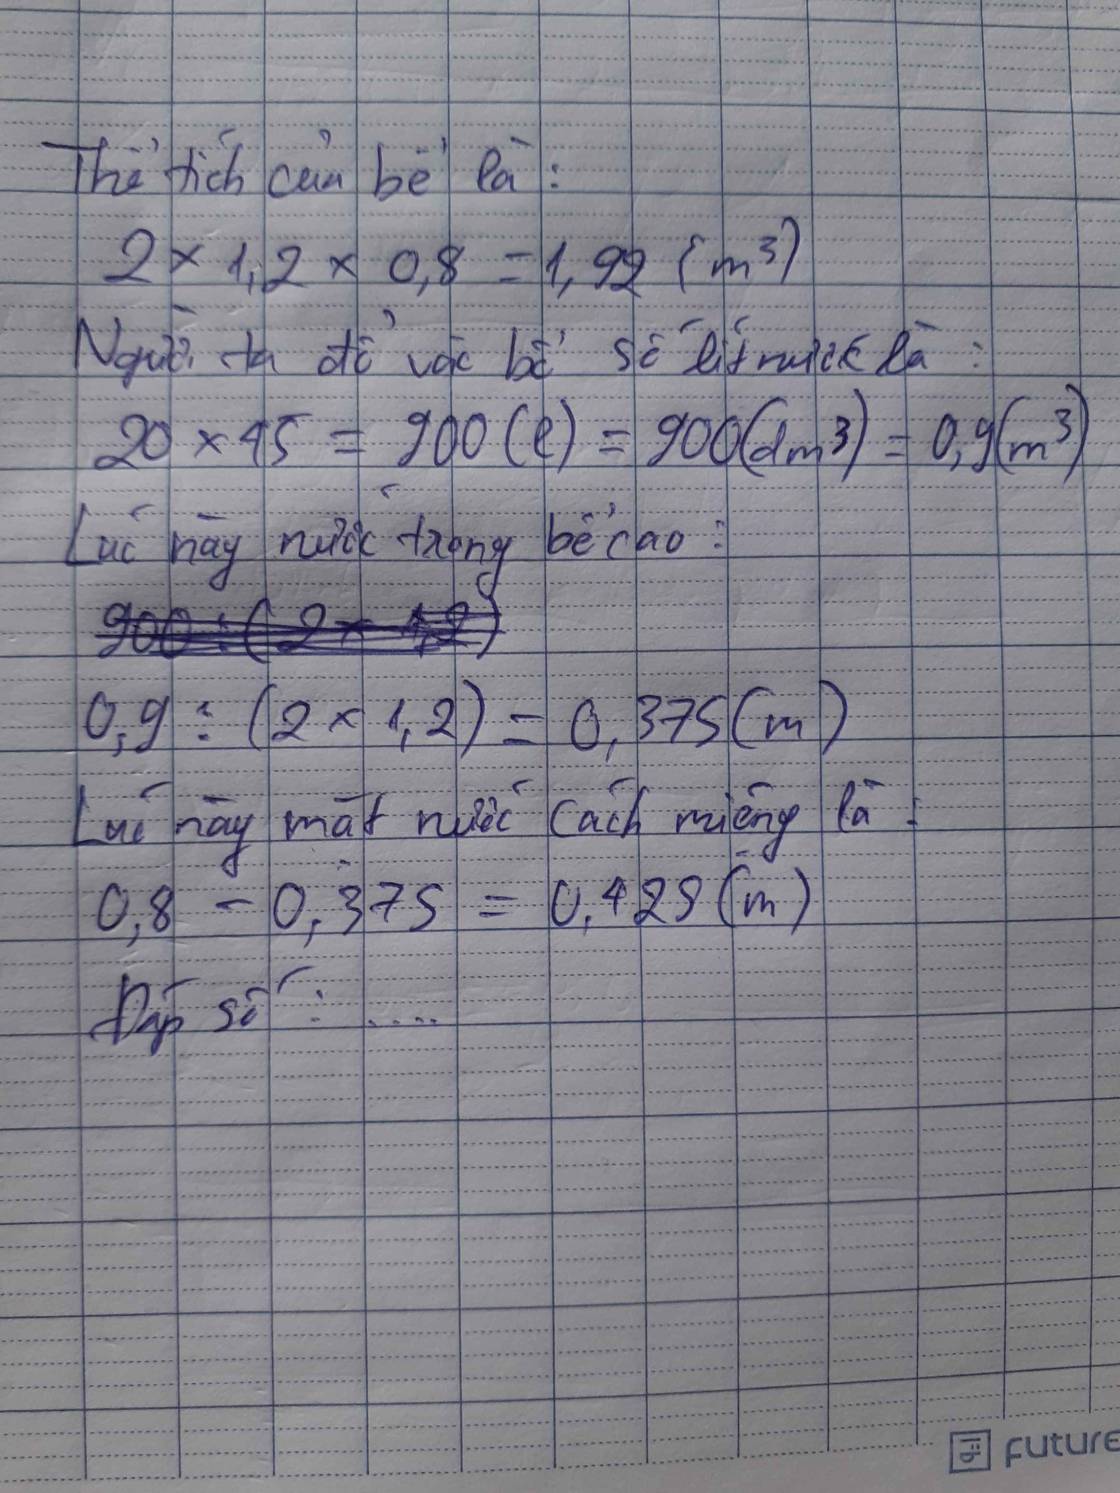 Thể tích của bể là :
2 × 1,2 × 0,8 = 1,92 (m³)
Người ta đổ vào bể số lít nước là :
20 × 45 = 900 (l) = 900(dm³) = 0,9(m³)
Lúc này nước trong bể cao :
900 : ( 2 × 1,2)
0,9 : (2 × 1,2) = 0,375(m)
Lúc này mặt nước cách miệng là :
0,8 - 0,375 = 0,425 (m)
Đáp số : ....
FUTURE